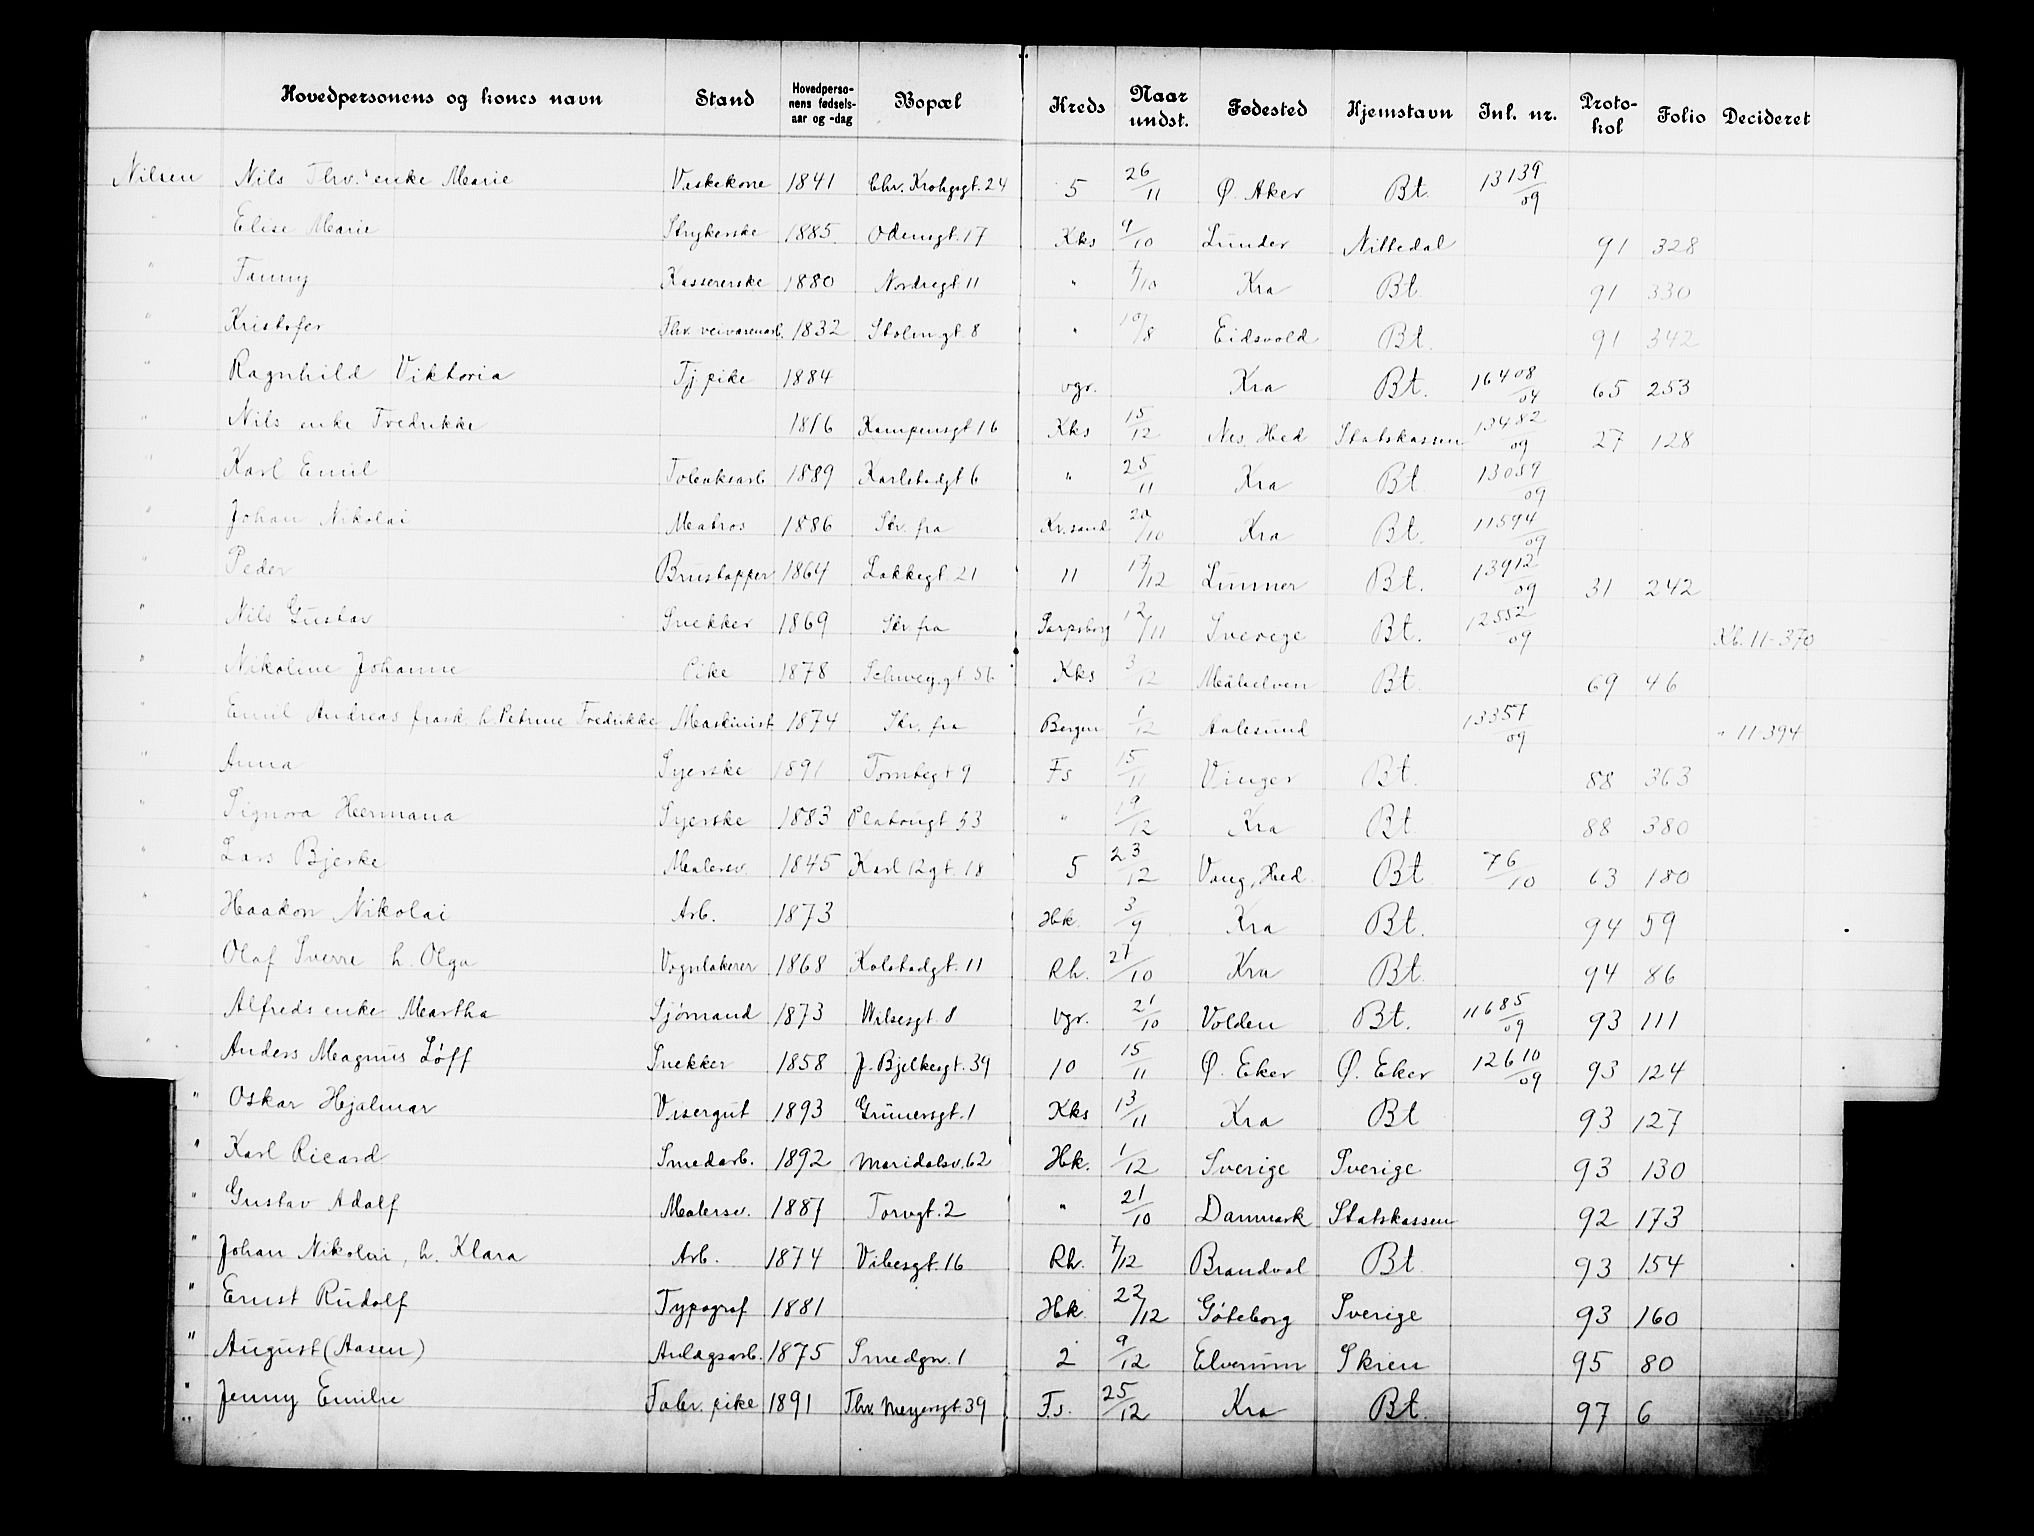 Hovedpersonens og kones navn Stand Hovedperso-nens fødsels-aar og -dag Bopæl Kreds Naar undst. Fødested Hjemstavn Inl. nr. Proto-kol Folio Decideret
Nilsen Nils Thv. enke Marie Vaskekone 1841 Chr. Krohgsgt. 24 5 26/11 Ø. Aker Bt. 13139/09
" Elise Marie Strykerske 1885 Odensgt. 17 Kks 9/10 Lunder Nittedal 91 328
" Fanny Kassererske 1880 Nordregt. 11 " /10 Kra Bt. 91 330
" Kristofer Thv. veivæsenarb. 1832 Stolmgt. 8 " 10/8 Eidsvold Bt. 91 342
" Ragnhild Viktoria Tj. pike 1884 vgr. Kra Bt. 16408/04 65 253
" Nils enke Fredrikke 1816 Kampensgt 16 Kks 15/12 Nes. Hed Statskassen 13482/09 27 128
" Karl Emil Tobaksarb 1889 Karlstadgt 6 " 25/11 Kra Bt. 13059/09
" Johan Nikolai Matros 1886 Skr. fra Kr.sand 20/10 Kra Bt. 11594/09
" Peder Brustapper 1864 Lakkegt. 21 11 17/12 Lunner Bt. 13912/09 31 242
" Nils Gustav Snekker 1869 Skr fra Sarpsborg 12/11 Sverige Bt. 12552/09 Kb. 11-370
" Nikoline Johanne Pike 1878 Schweg.gt 56 Kks 3/12 Bt. 69 46
" Emil Andreas frask. h. Petrine Fredrikke Maskinist 1874 Skr. fra Bergen 1/12 Aalesund 13357/09 " 11-394
" Anna Syerske 1891 Tomtegt 9 Fs 15/11 Vinger Bt. 88 363
" Signora Hermana Syerske 1883 Platougt 33 " 19/12 Kra Bt 88 380
" Lars Bjerke Malersv. 1845 Karl 12gt. 18 5 23/12 Vang, Hed. Bt 76/10 63 180
" Haakon Nikolai Arb. 1873 Hk. 3/9 Kra Bt. 94 59
" Olaf Sverre h. Olga Vognlakerer 1868 Kolstadgt. 11 Rh. 27/10 Kra Bt. 94 86
" Alfreds enke Martha Sjømand 1873 Wilsesgt 8 vgr. 21/10 Volden Bt. 11685/09 93 111
" Anders Magnus Løff Snekker 1858 J. Bjelkesgt. 39 10 15/11 Ø. Eker Ø. Eker 12610/09 93 124
" Oskar Hjalmar Visergut 1893 Grünersgt. 1 Kks 13/11 Kra Bt 93 127
" Karl Ricard Smedarb. 1892 Maridalsv. 62 Hk. 1/12 Sverige Sverige 93 130
" Gustav Adolf Malersv. 1887 Torvgt. 2 " 21/10 Danmark Statskassen 92 173
" Johan Nikolai, h. Klara Arb. 1874 Vibesgt. 16 Rh. 7/12 Brandval Bt 93 154
" Ernst Rudolf Typograf 1881 Hk 22/12 Göteborg Sverige 93 160
" August (Aasen) Anlagsarb. 1875 Smedgn. 1 2 9/12 Elverum Skien 95 80
" Jenny Emilie Fabr. pike 1891 Thv. Meyersgt. 39 F.s. 25/12 Kra Bt. 97 6
"